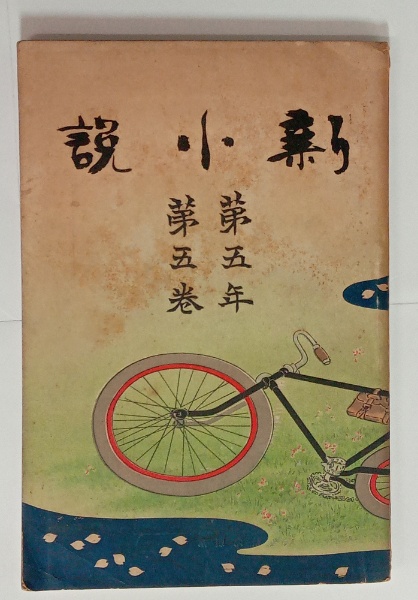 新小説
第五年
第五巻